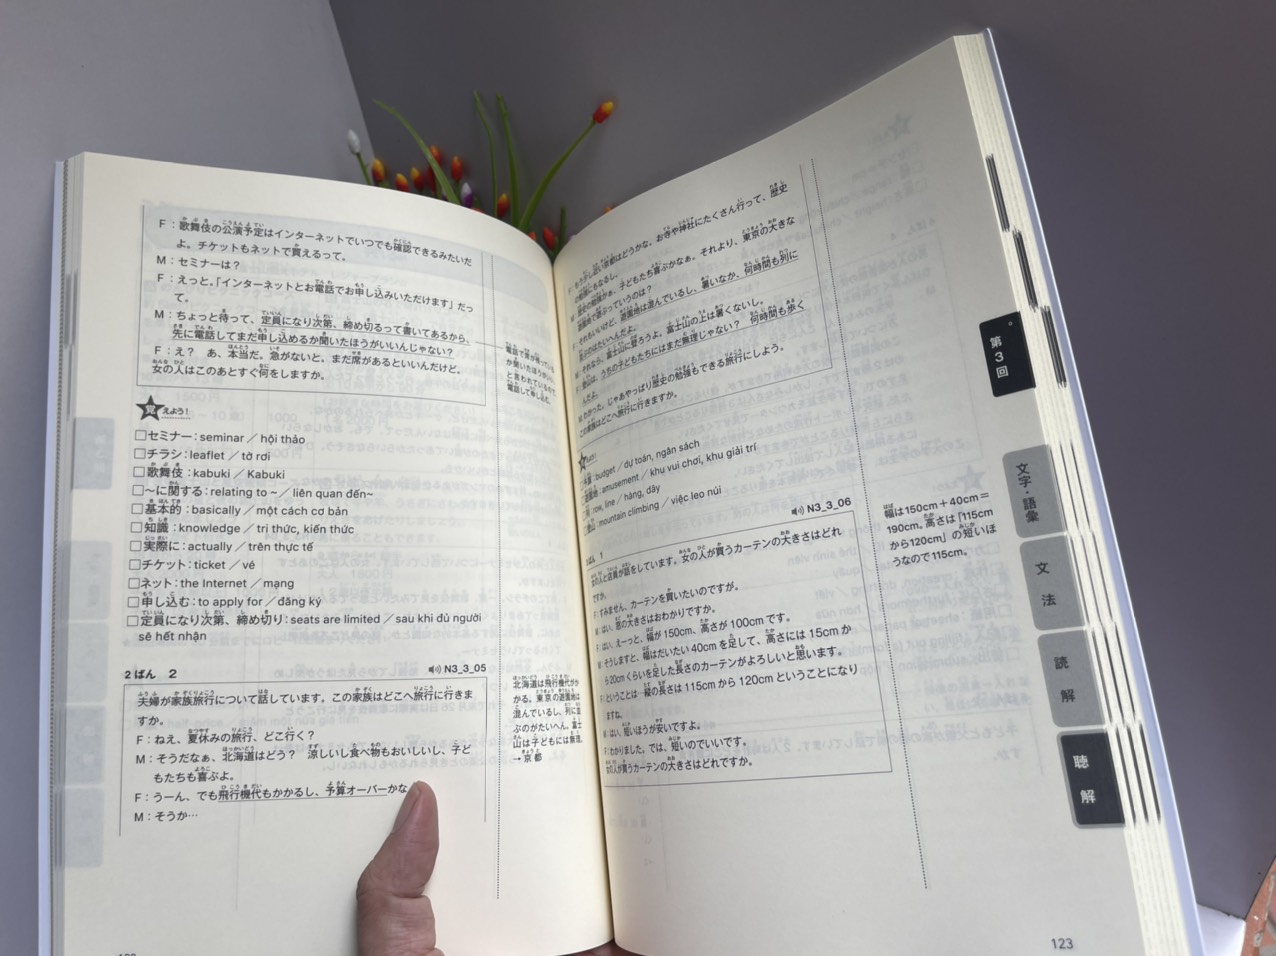 F：歌舞伎の公演予定はインターネットでいつでも確認できるみたいだ
よ。チケットもネットで買えるって。
M：セミナーは？
F：えっと。「インターネットとお電話でお申し込みいただけます」だっ
て。
M：ちょっと待って、定員になり次第、締め切るって書いてあるから、
先に電話してまだ申し込めるか聞いたほうがいいんじゃない？
F：え？　あ、本当だ。急がないと。まだ席があるといいんだけど。
女の人はこのあとすぐ何をしますか。
覚えよう！
□セミナー：seminar／hội thảo
□チラシ：leaflet／tờ rơi
□歌舞伎：kabuki／Kabuki
□～に関する：relating to ~／liên quan đến~
□基本的：basically／một cách cơ bản
□知識：knowledge／tri thức, kiến thức
□実際に：actually／trên thực tế
□チケット：ticket／vé
□ネット：the Internet／mạng
□申し込む：to apply for／đăng ký
□定員になり次第、締め切り：seats are limited／sau khi đủ người
sẽ hết nhận
2ばん　2
N3_3_05
夫婦が家族旅行について話しています。この家族はどこへ旅行に行きま
すか。
F：ねえ、夏休みの旅行、どこ行く？
M：そうだなぁ、北海道はどう？　涼しいし食べ物もおいしいし、子ど
もたちも喜ぶよ。
F：うーん、でも飛行機代もかかるし、予算オーバーかな
M：そうか…
北海道は飛行機代がか
かる。東京の遊園地は
混んでいるし、列に並
ぶのがたいへん。富士
山は子どもには無理。
→京都
京都はどうかな。お寺や神社にたくさん行って、歴史
の勉強にもなるし。
子どもたち喜ぶかなぁ。それより、東京の大きな
遊園地で遊ぶっていうのは？
それもいいけど、遊園地は混んでいるし、暑いなか、何時間も列に
並ぶのはたいへんだよ。
それなら、富士山に登ろうよ。富士山の上は暑くないし。
うちの子どもたちにはまだ無理じゃない？　何時間も歩く
んだよ。
わかった。じゃあやっぱり歴史の勉強もできる旅行にしよう。
この家族はどこへ旅行に行きますか。
budget／dự toán, ngân sách
amusement／khu vui chơi, khu giải trí
row, line／hàng, dãy
mountain climbing／việc leo núi
N3_3_06
女の人と店員が話をしています。女の人が買うカーテンの大きさはどれ
ですか。
F：すみません、カーテンを買いたいのですが。
M：はい、窓の大きさはおわかりですか。
F：はい、えーっと、幅が150cm、高さが100cmです。
M：そうしますと、幅はだいたい40cmを足して、高さには15cmか
ら20cmくらいを足した長さのカーテンがよろしいと思います。
F：ということは…縦の長さは115cmから120cmということになり
ますね。
M：はい、短いほうが安いですよ。
F：わかりました。では、短いのでいいです。
女の人が買うカーテンの大きさはどれですか。
幅は150cm＋40cm＝
190cm。高さは「115cm
から120cm」の短いほ
うなので115cm。
第3回
文字・語彙
文法
読解
聴解
123